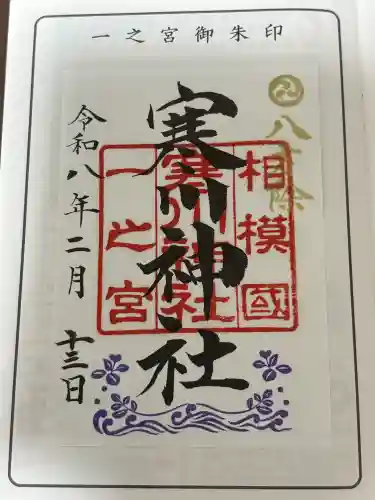 一之宮御朱印
八方除
相模國
寒川神社
一之宮
寒川神社
令和八年二月
十三日